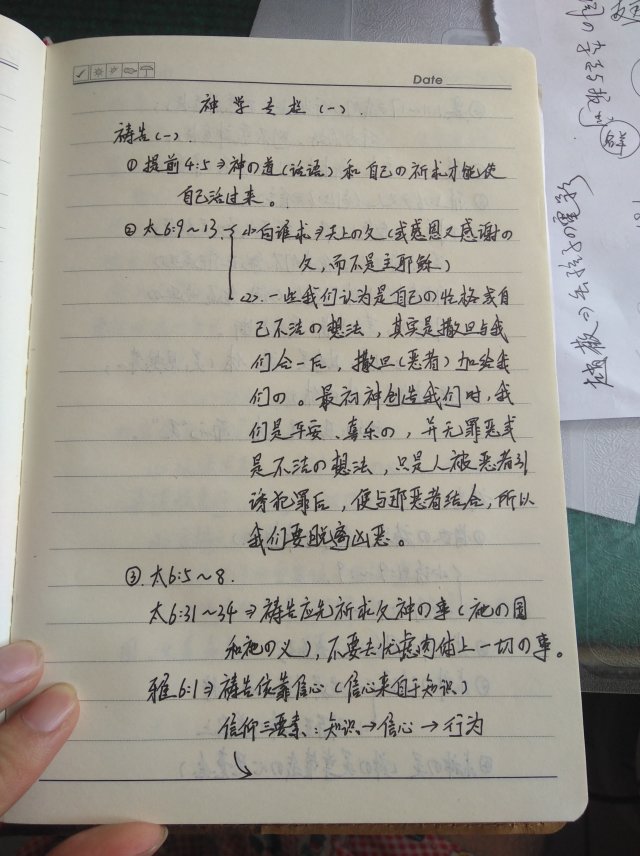 Date
神学专栏(一).
祷告(一).
① 提前4:5⇒神の道(话语)和自己の祈求才能使
自己洁过来。
② 太6:9~13. <1>向谁求⇒天上の父(或感恩又感谢の
父,而不是主耶稣.)
<2>.一些我们认为是自己の性格或自
己不洁の想法,其实是撒旦与我
们合一后,撒旦(恶者)加给我
们の。最初神创造我们时,我
们是平安、喜乐の,并无罪恶或
是不洁の想法,只是人被恶者引
诱犯罪后,便与邪恶者结合,所以
我们要脱离凶恶。
③.太6:5~8.
太6:31~34⇒祷告应先祈求父神の事(祂の国
和祂の义),不要去忧虑肉体上一切の事。
雅6:1⇒祷告依靠信心(信心来自于知识)
信仰三要素:知识→信心→行为
の孝经与